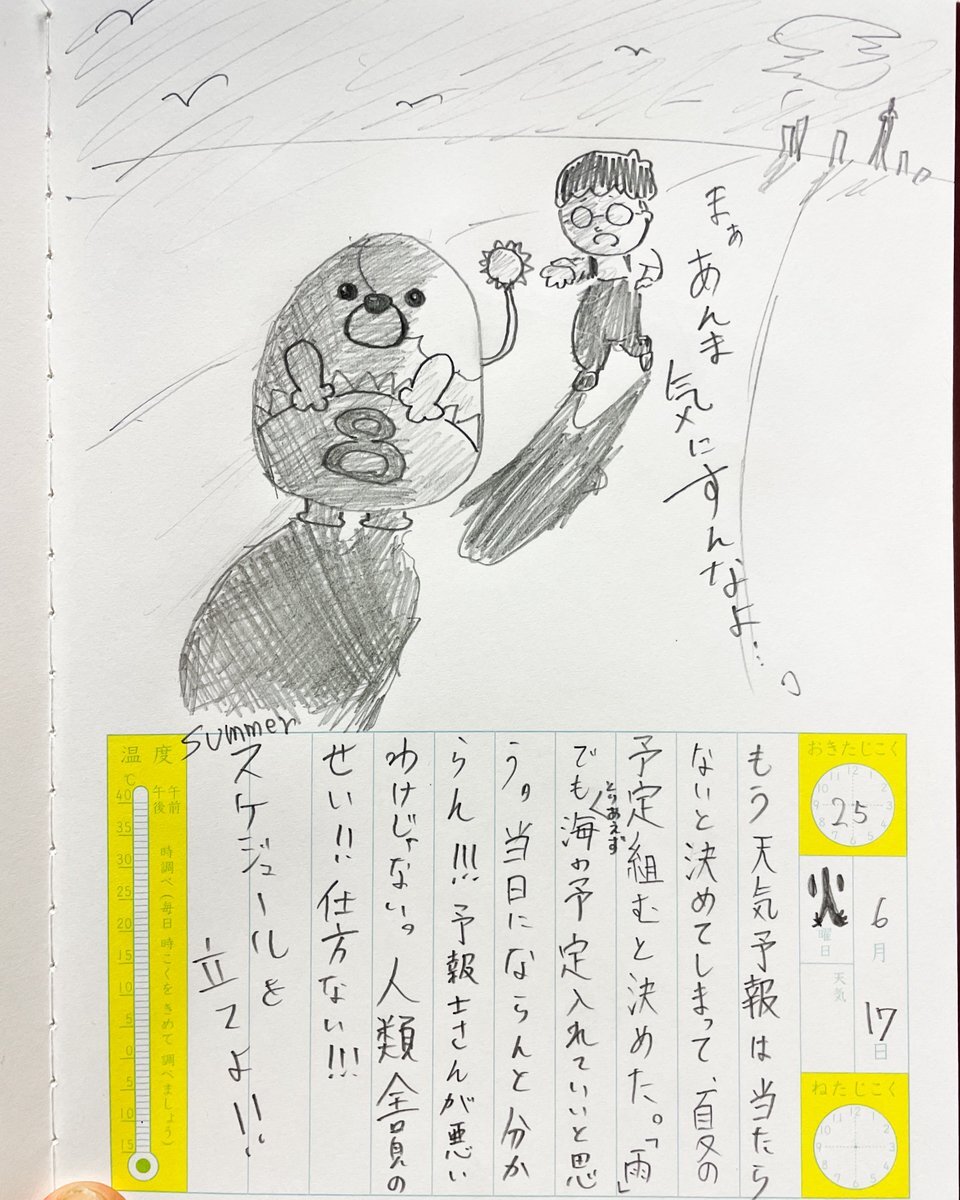 まぁ
あんま
気にすんなよ…。
8
おきたじこく
25
6月
17日
火曜日
天気
ねたじこく
もう天気予報は当たら
ないと決めてしまって、夏の
予定組むと決めた。「雨」
でも海の予定入れていいと思
とりあえず
う。当日にならんと分か
らん!!!予報士さんが悪い
わけじゃない。人類全員の
せい!!仕方ない!!!
summer
スケジュールを
立てよ!!
温度
℃
午前
午後
時調べ(毎日 時こくをきめて 調べましょう)
40
35
30
25
20
15
10
5
0
5
10
15